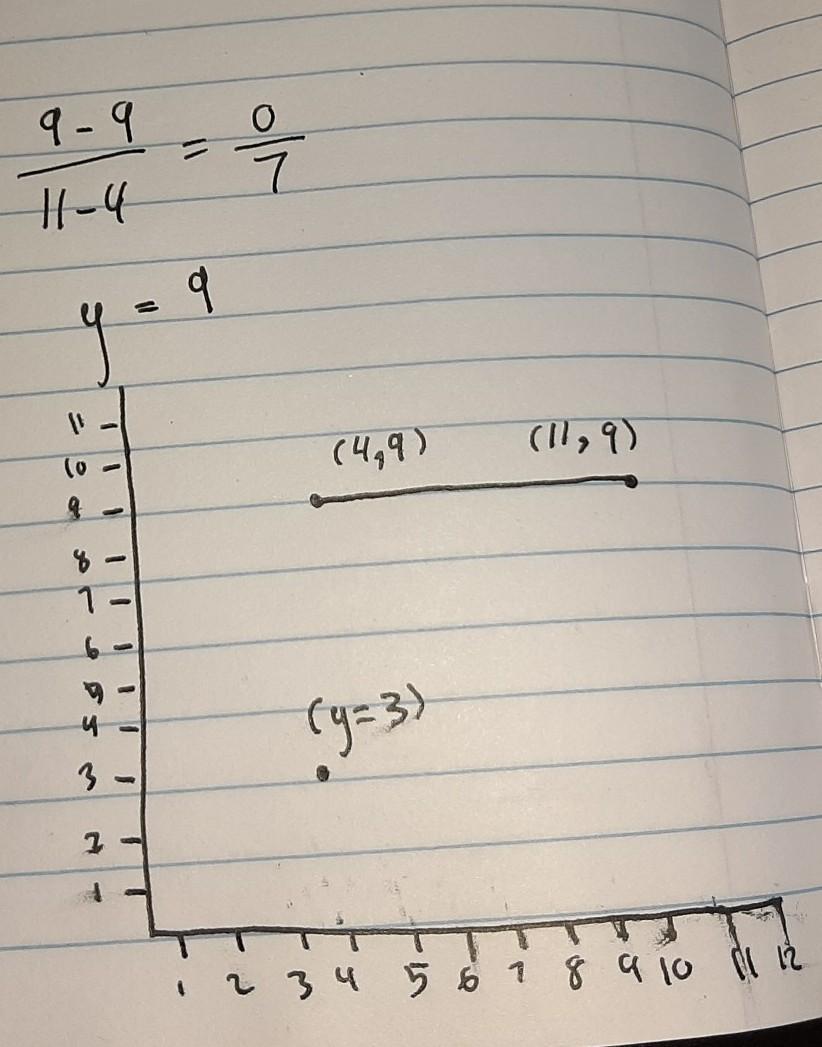 9 - 9
11 - 4
=
0
7
y = 9
11
10
(4,9) (11,9)
9
8
7
6
5
4
(y=3)
3
2
1
1 2 3 4 5 6 7 8 9 10 11 12